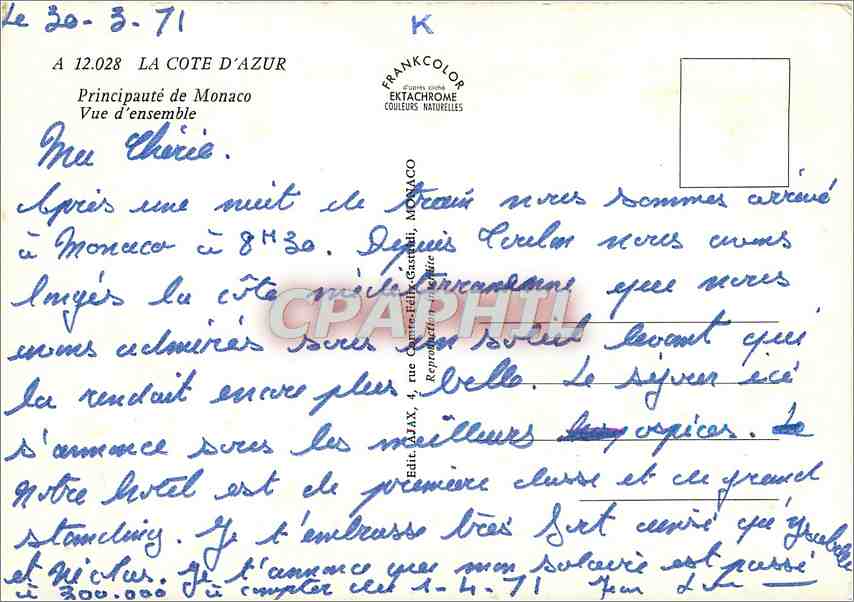 Le 30-3-71
K
A 12.028 LA COTE D'AZUR
Principauté de Monaco
Vue d'ensemble
FRANKCOLOR
d'après cliché
EKTACHROME
COULEURS NATURELLES
Edit. AJAX, 4, rue Comte-Félix-Gastaldi, MONACO
Reproduction interdite
Ma Chérie.
Après une nuit de train nous sommes arrivé
à Monaco à 8H30. Depuis Toulon nous avons
longés la côte méditerranéenne que nous
avons admirés sous son soleil levant qui
la rendait encore plus belle. Le séjour ici
s'annonce sous les meilleurs ospices.
Notre hotel est de première classe et de grand
standing. Je t'embrasse très fort ainsi qu'Ysabelle
et Nicolas. Je t'annonce que mon salaire est passé
à 300.000 à compter du 1-4-71 Jean
CPAPHIL